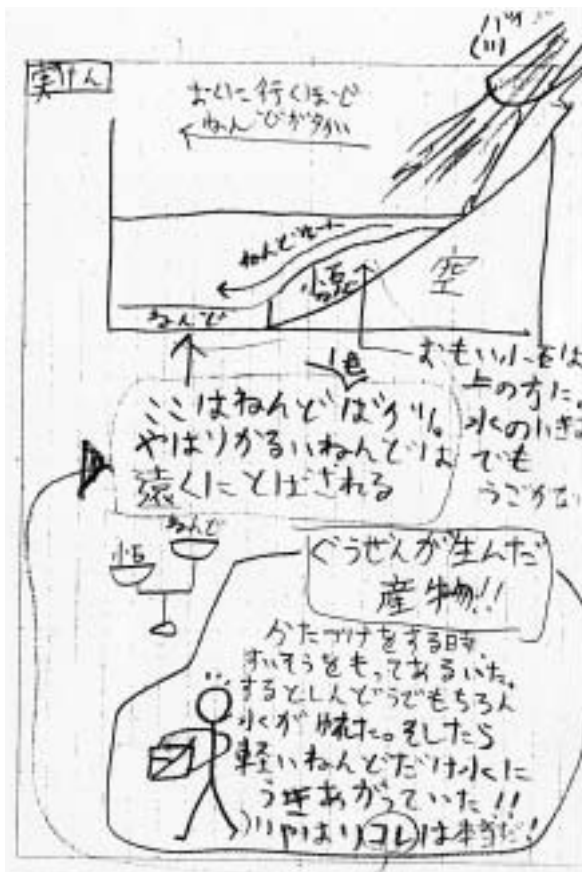 実けん
おくに行くほど
ねんどが多い
ねんど
小石
空
ねんど
1色
おもい小石は
上の方に。
水のいきお
でも
うごかない
ここはねんどばかり。
やはりかるいねんどは
遠くにとばされる
小石
ねんど
ぐうぜんが生んだ
産物!!
かたづけをする時、
すいそうをもってあるいた。
するとしんどうでもちろん
水が揺れた。そしたら
軽いねんどだけ水に
うきあがっていた!!
やはりコレは本当だ!